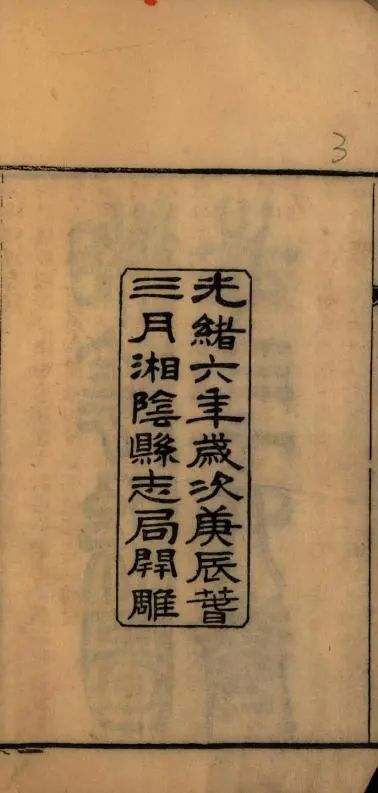 3
光緒六年歲次庚辰萅
三月湘陰縣志局開雕